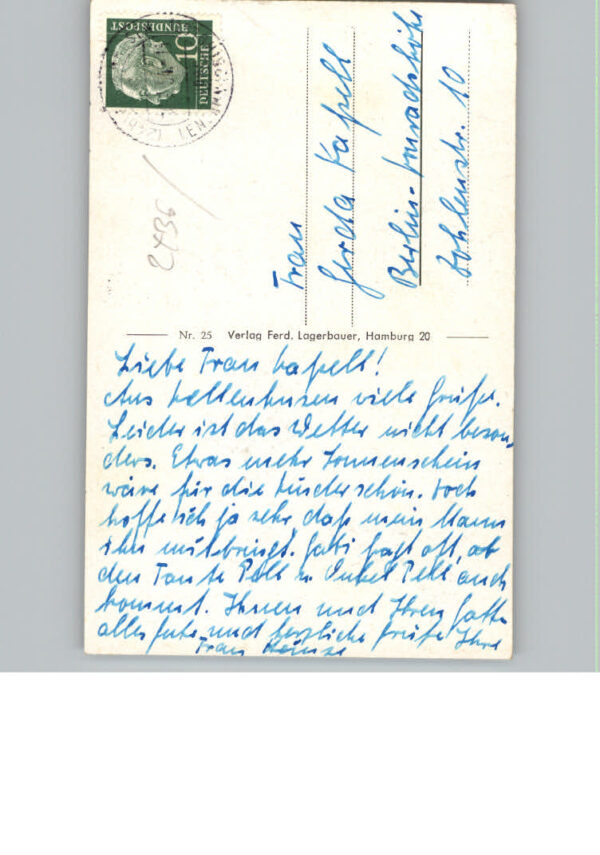 DEUTSCHE
BUNDESPOST
10
2436
Frau
Gerda Kapell
Berlin-
Dohlenstr. 10
Nr. 25 Verlag Ferd. Lagerbauer, Hamburg 20
Liebe Frau Kapell!
Aus Kellenhusen viele Grüße.
Leider ist das Wetter nicht beson-
ders. Etwas mehr Sonnenschein
wäre für die Kinder schön. Doch
hoffe ich ja sehr, daß mein Mann
ihn mitbringt. Gabi fragt oft, ob
den Tante Pell u. Onkel Pell auch
kommt. Ihnen und Ihren Gatten
alles Gute und herzliche Grüße Ihre
Frau